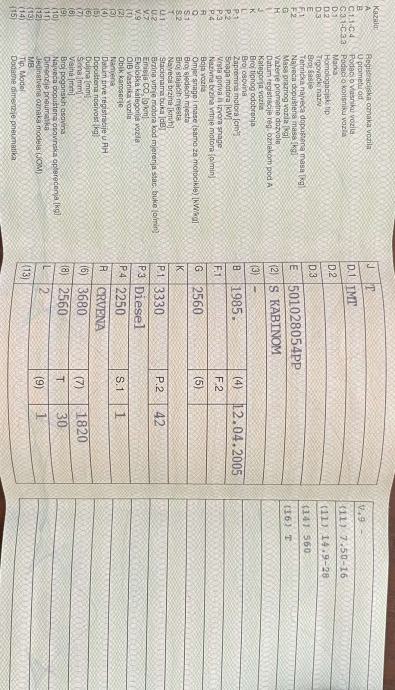 Kazalo:
A Registracijska oznaka vozila
B U prometu od
C.1.1-C.4 Podaci o vlasniku vozila
C.3.1-C.3.3 Podaci o korisniku vozila
D.1 Marka
D.2 Homologacijski tip
D.3 Trgovački naziv
E Broj šasije
F.1 Tehnička najveća dopuštena masa [kg]
F.2 Najveća dopuštena masa [kg]
G Masa praznog vozila [kg]
H Važenje prometne dozvole
I Datum registracije isp. oznakom pod A
J Kategorija vozila
K Broj tipnog odobrenja
L Broj osovina
P.1 Zapremina motora [cm³]
P.2 Snaga motora [kW]
P.3 Vrsta goriva ili izvora snage
P.4 Nazivna brzina vrtnje motora [o/min]
R Boja vozila
Q Omjer snage i mase (samo za motocikle) [kW/kg]
S.1 Broj sjedećih mjesta
S.2 Broj stajaćih mjesta
T Najveća brzina [km/h]
U.1 Stacionarna buka [dB]
U.2 Brzina vrtnje motora kod mjerenja stac. buke [o/min]
V.7 Emisija CO₂ [g/km]
V.9 Ekološka kategorija vozila
(1) DJB vlasnika
(2) Oblik karoserije
(3) Namjena
(4) Datum prve registracije u RH
(5) Dopuštena nosivost [kg]
(6) Duljina [mm]
(7) Širina [mm]
(8) Visina [mm]
(9) Broj pogonskih osovina
(10) Najveća dopuštena osovinska opterećenja [kg]
(11) Dimenzije pneumatika
(12) Jedinstvena oznaka modela (JOM)
(13) MB
(14) Tip, Model
(15) Dodatne dimenzije pneumatika
J T
D.1 IMT
D.2
D.3
E 501028054PP
(2) S KABINOM
(3) -
B 1985. (4) 12.04.2005
F.1 F.2
G 2560 (5)
K
P.1 3330 P.2 42
P.3 Diesel
P.4 2250 S.1 1
R CRVENA
(6) 3680 (7) 1820
(8) 2560 T 30
L 2 (9) 1
(13)
V.9 -
(11) 7.50-16
(11) 14.9-28
(14) 560
(16) T